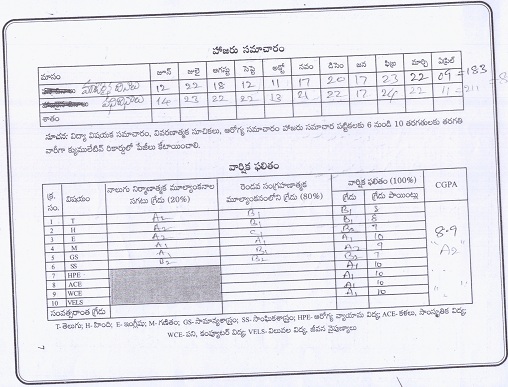 హాజరు సమాచారం
మాసం జూన్ జులై ఆగస్టు సెప్టె అక్టో నవం డిసెం జన ఫిబ్ర మార్చి ఏప్రిల్
12 22 18 12 11 17 20 17 23 22 09 =183
14 23 22 22 13 21 22 17 24 22 11 =211
శాతం
సూచన: విద్యా విషయక సమాచారం, వివరణాత్మక సూచికలు, ఆరోగ్య సమాచారం హాజరు సమాచార పట్టికలకు 6 నుండి 10 తరగతులకు తరగతి
వారీగా క్యుములేటివ్ రికార్డులో పేజీలు కేటాయించాలి.
వార్షిక ఫలితం
క్ర. సం. విషయం నాలుగు నిర్మాణాత్మక మూల్యాంకనాల సగటు గ్రేడు (20%) రెండవ సంగ్రహణాత్మక మూల్యాంకనంలోని గ్రేడు (80%) వార్షిక ఫలితం (100%) CGPA
గ్రేడు గ్రేడు పాయింట్లు
1 T A2 B1 B1 8
2 H A2 B1 B1 8
3 E A2 B2 7
4 M A1 A1 A1 10
5 GS A1 B1 A2 9
6 SS B2 B2
7 HPE A1 10
8 ACE A1 10
9 WCE A1 10
10 VELS A1 10
8.9
"A2"
సంవత్సరాంత గ్రేడు
T- తెలుగు; H- హింది; E- ఇంగ్లీషు; M- గణితం; GS- సామాన్యశాస్త్రం; SS- సాంఘికశాస్త్రం; HPE- ఆరోగ్య వ్యాయామ విద్య; ACE- కళలు, సాంస్కృతిక విద్య;
WCE- పని, కంప్యూటర్ విద్య; VELS- విలువల విద్య, జీవన నైపుణ్యాలు